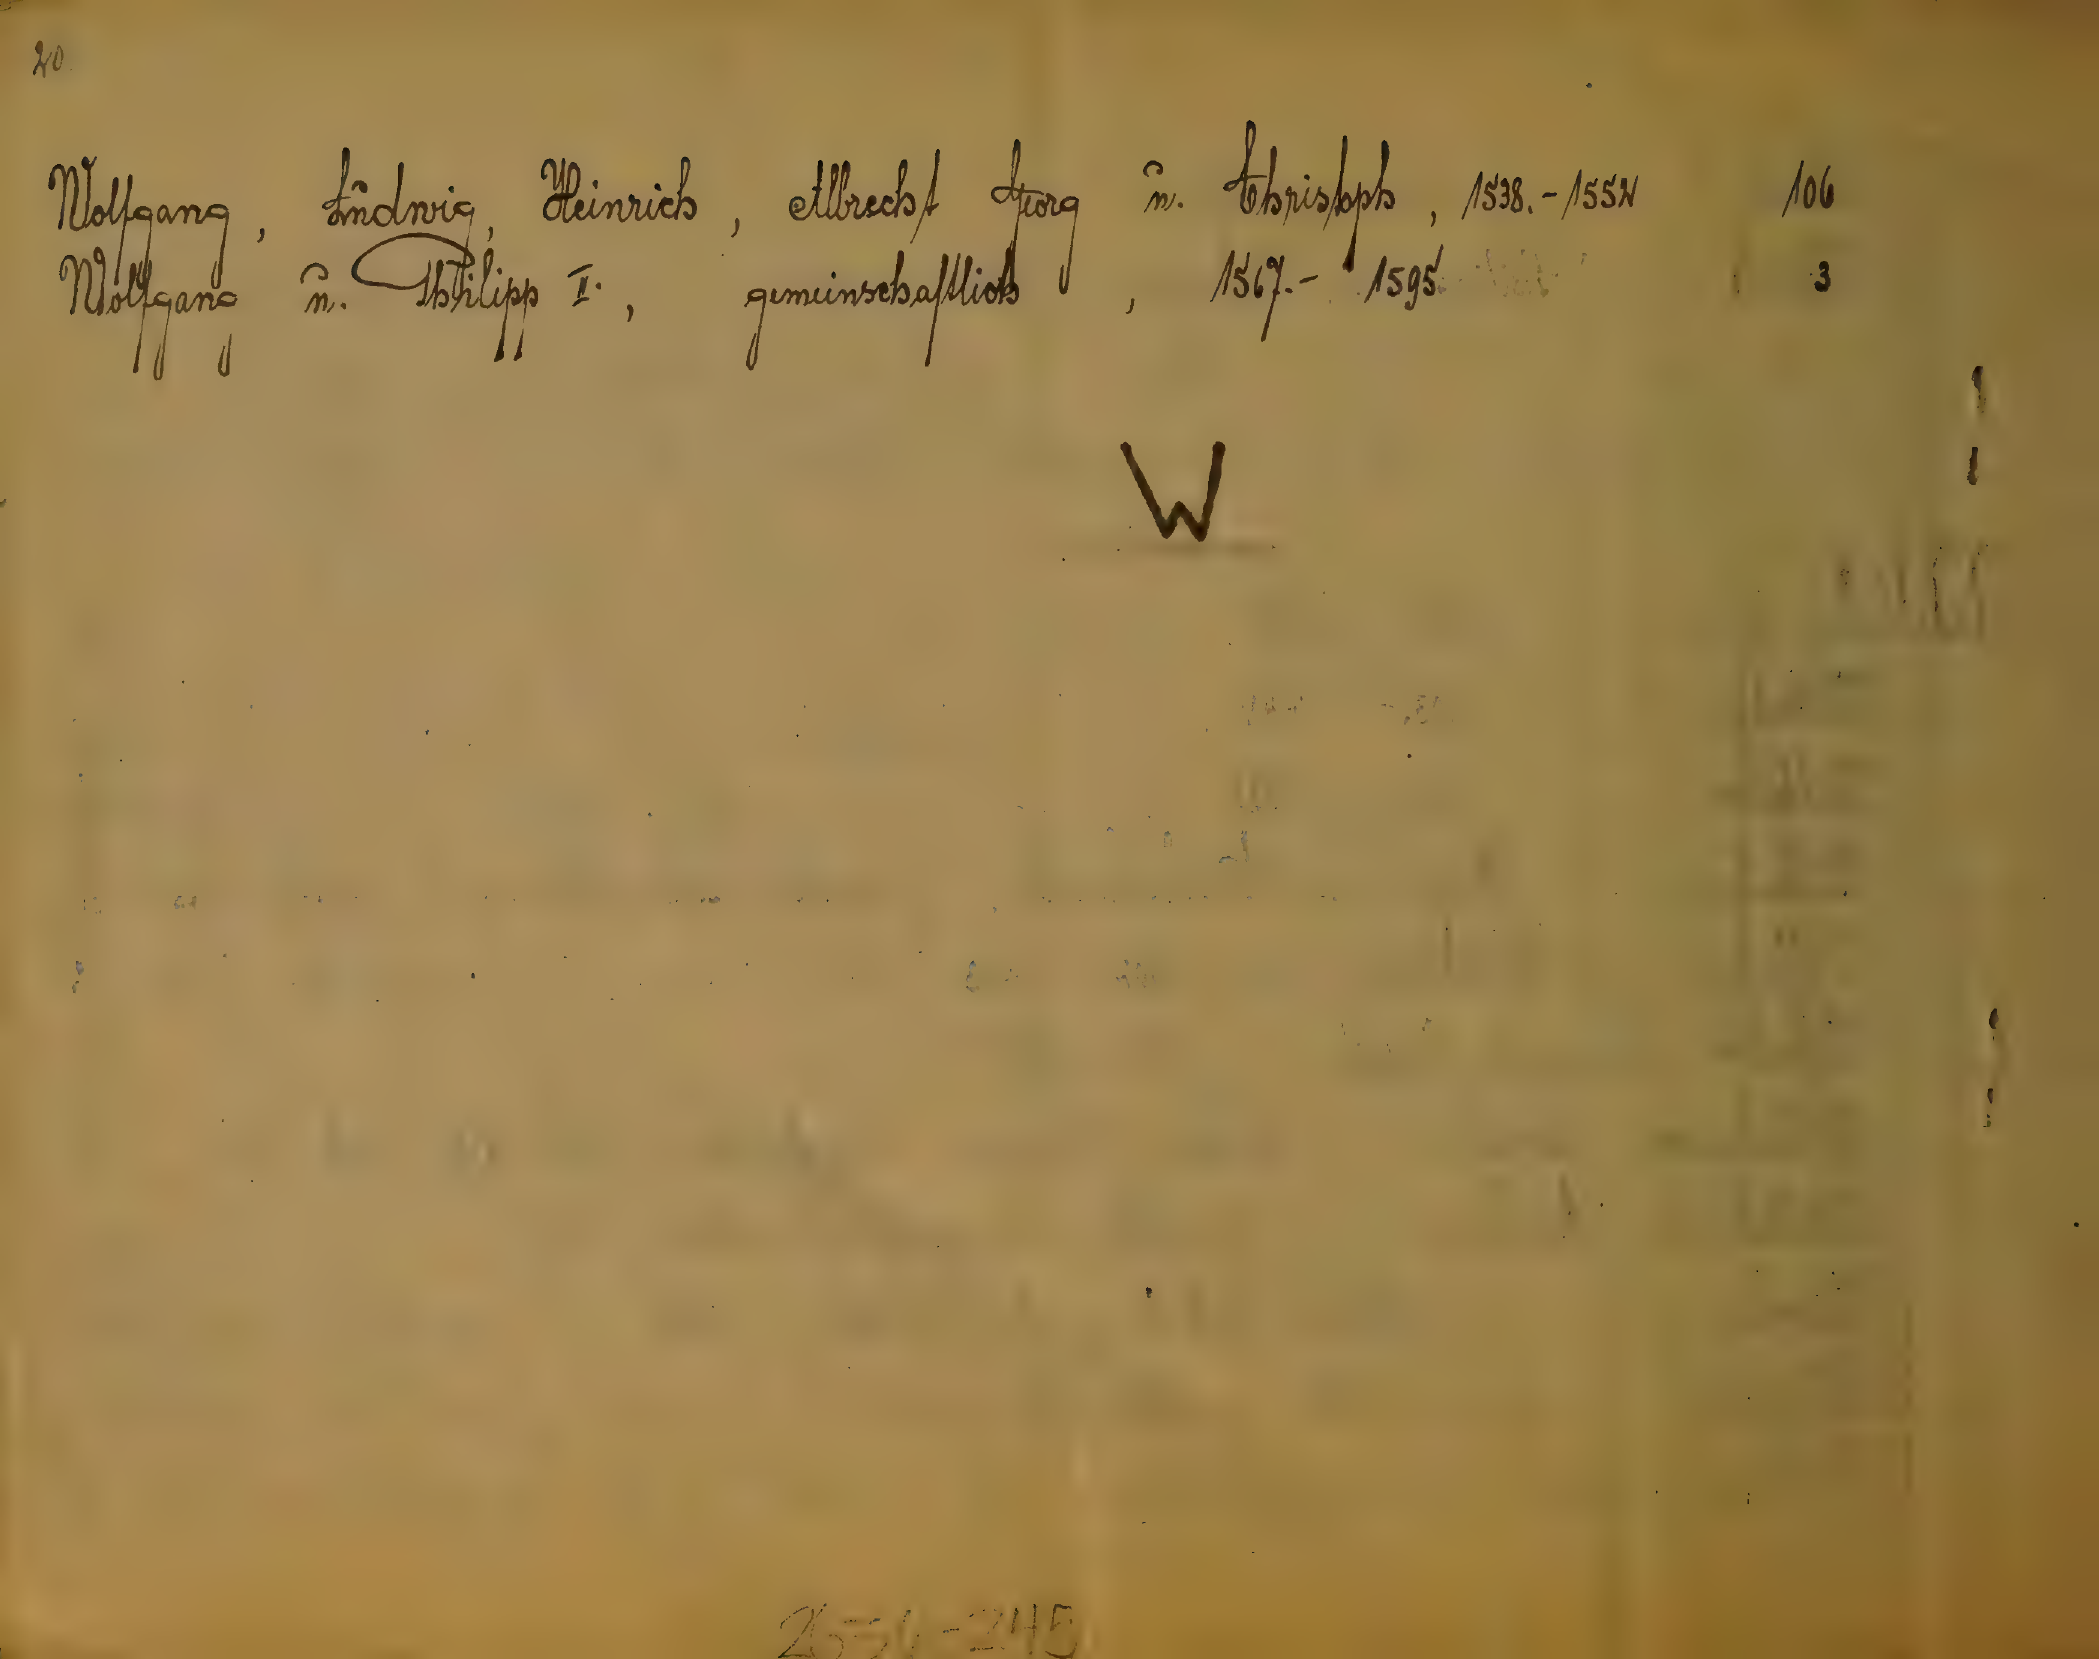 20.
Wolfgang, Ludwig, Heinrich, Albrecht Georg u. Christoph, 1538.-1552 106
Wolfgang u. Philipp I., gemeinschaftlich, 1567.- 1595. 3
W